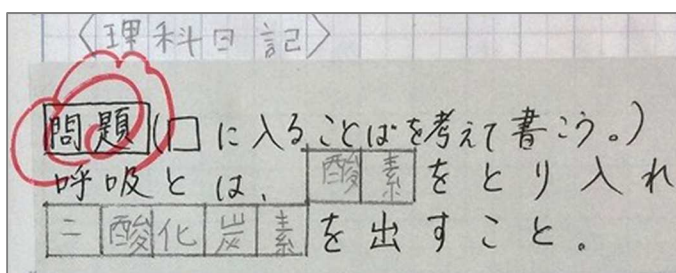 〈理科日記〉
問題(□に入ることばを考えて書こう。)
呼吸とは、酸素をとり入れ
二酸化炭素を出すこと。